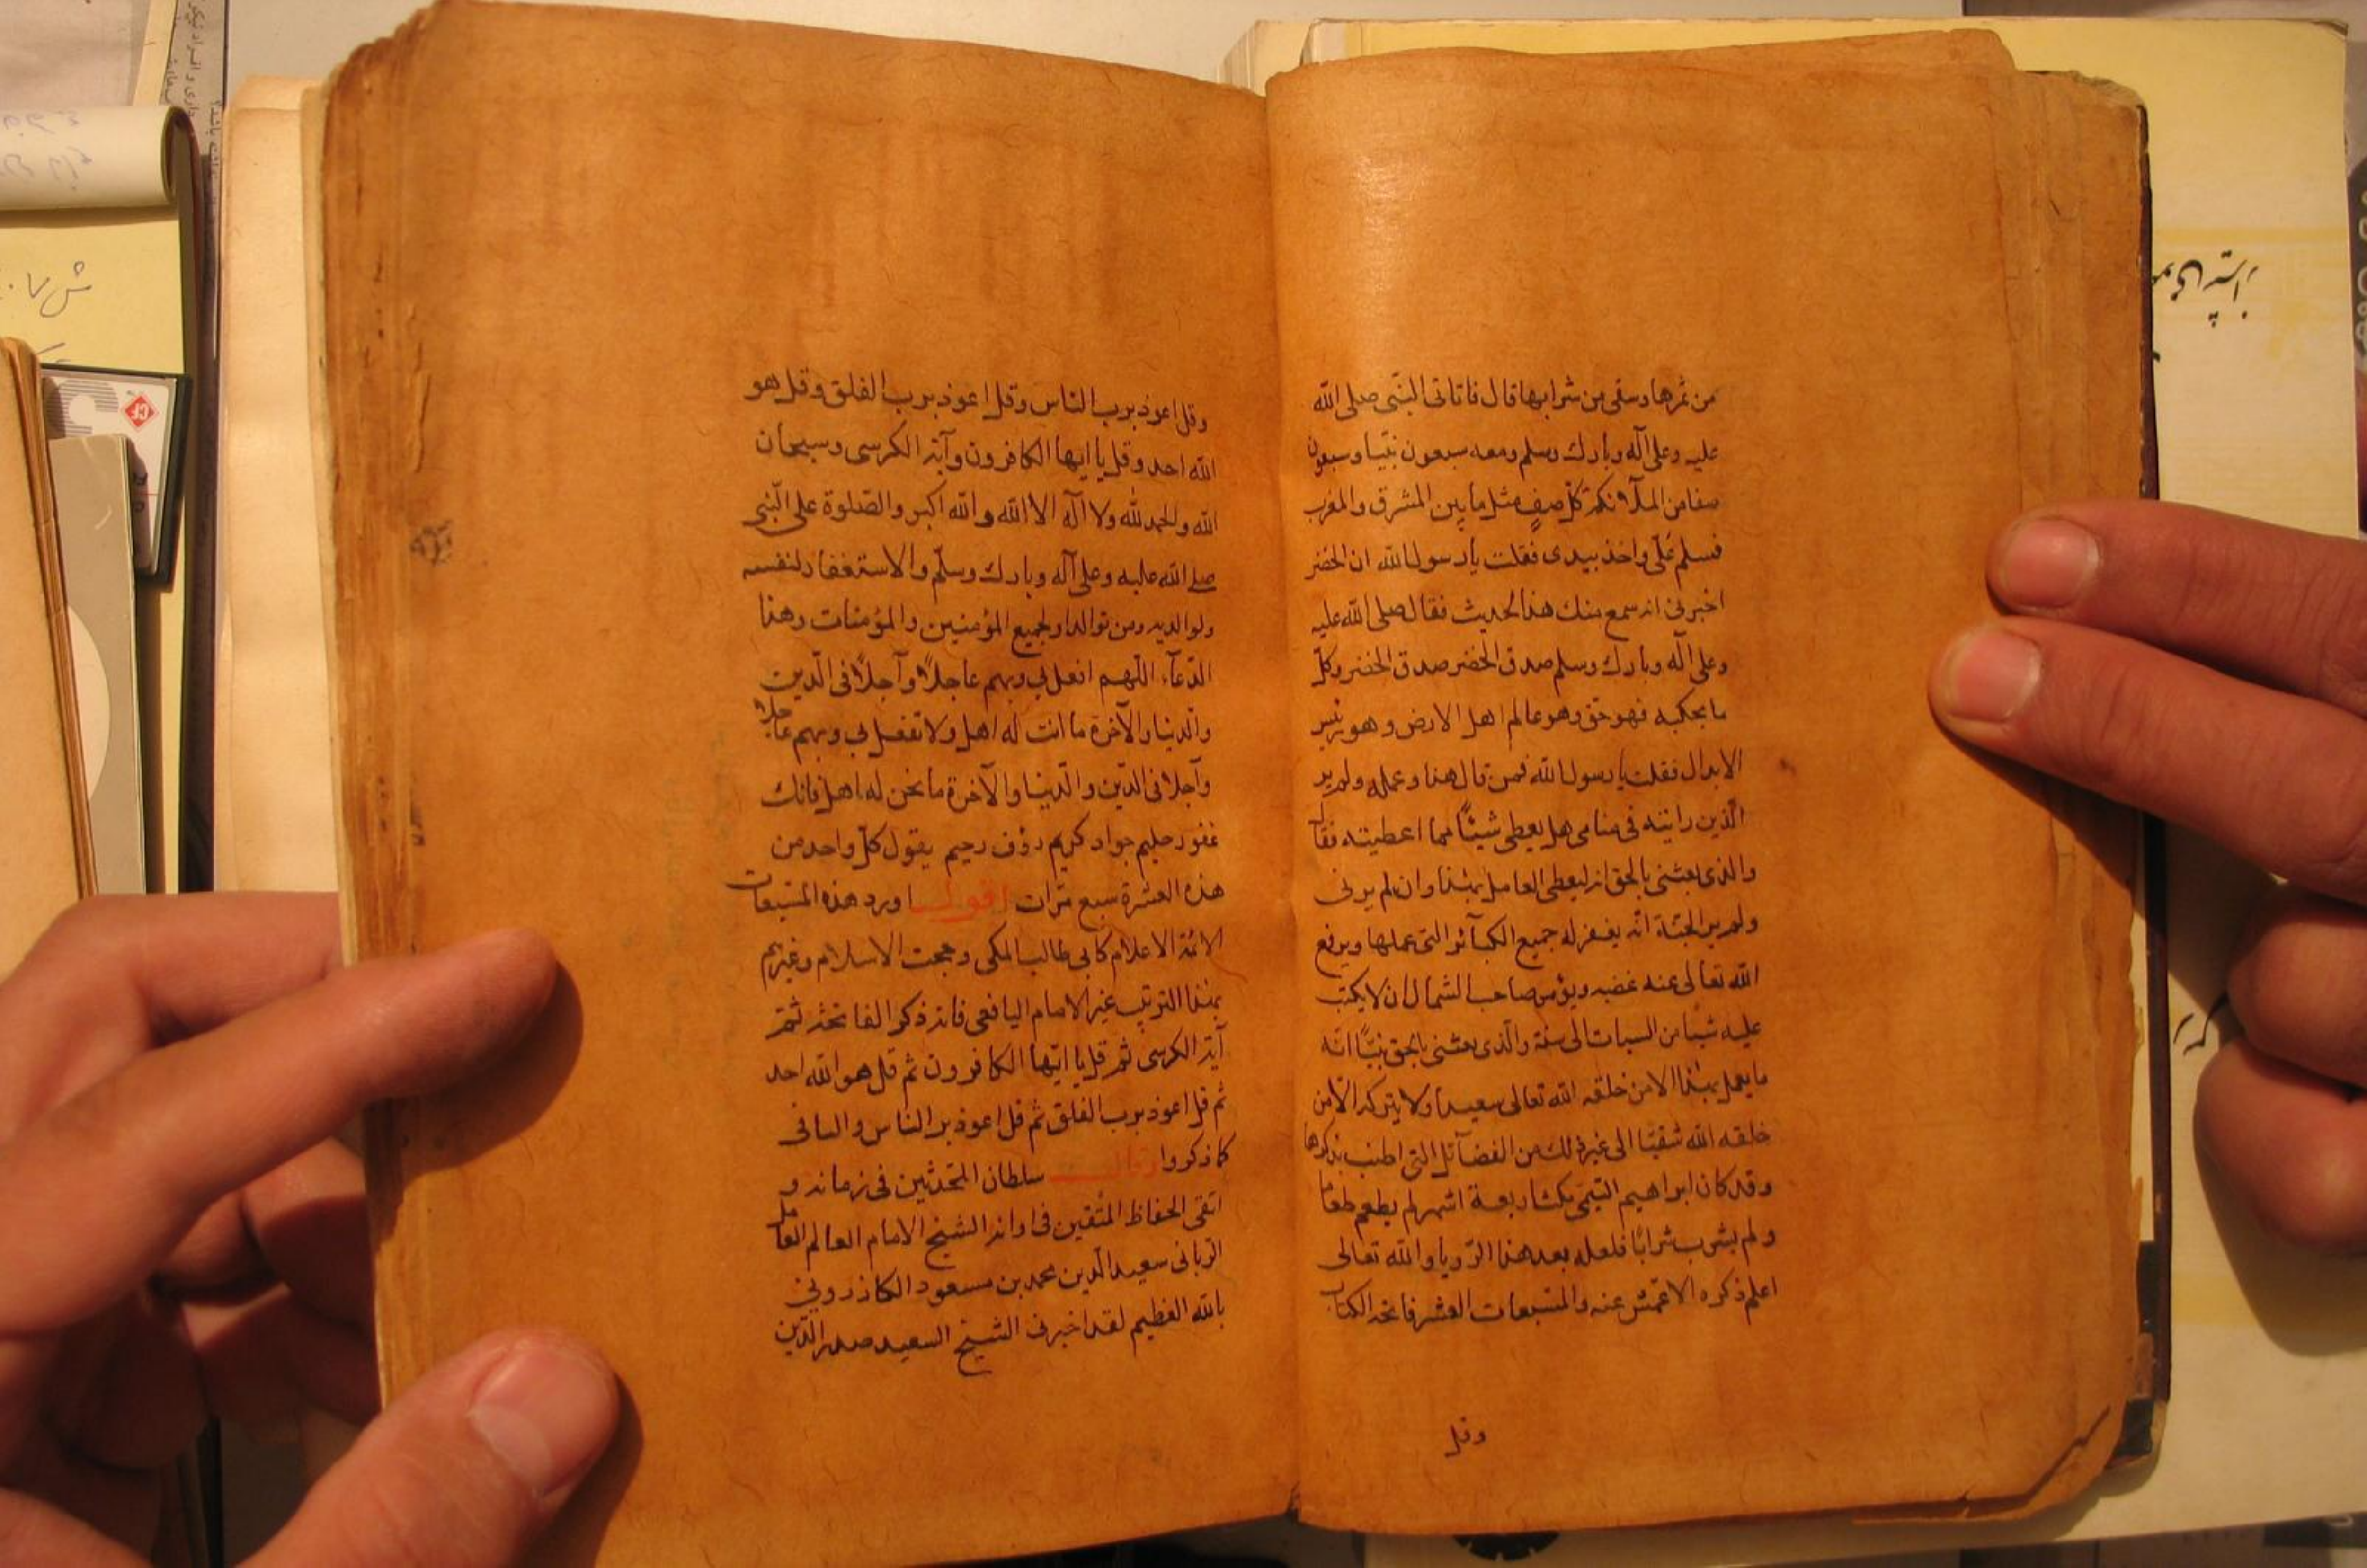 من ثمرها وسقى من شرابها قال فاتانى النبى صلى الله
عليه وعلى آله وبارك وسلم ومعه سبعون نبيا وسبعون
صفا من الملائكة كل صف مثل ما بين المشرق والمغرب
فسلم على واخذ بيدى فقلت يا رسول الله ان الخضر
اخبرنى انه سمع منك هذا الحديث فقال صلى الله عليه
وعلى آله وبارك وسلم صدق الخضر صدق الخضر وكل
ما يحكيه فهو حق وهو عالم اهل الارض وهو رئيس
الابدال فقلت يا رسول الله فمن قال هذا وعمله ولم ير
الذين رايته فى منامى هل يعطى شيئا مما اعطيته فقال
والذى بعثنى بالحق انه ليعطى العامل بهذا وان لم يرنى
ولم ير الجنة انه يغفر له جميع الكبائر التى عملها ويرفع
الله تعالى عنه غضبه ويؤمر صاحب الشمال ان لا يكتب
عليه شيئا من السيات الى سنة والذى بعثنى بالحق نبيا انه
ما يعمل بهذا الا من خلقه الله تعالى سعيدا ولا يتركه الا من
خلقه الله شقيا الى غير ذلك من الفضائل التى اطنب بذكرها
وقد كان ابراهيم التيمى مكث اربعة اشهر لم يطعم طعاما
ولم يشرب شرابا فلعله بعد هذا الرويا والله تعالى
اعلم ذكره الاعمش عنه والمسبعات العشر فاتحة الكتاب
وقل
وقل اعوذ برب الناس وقل اعوذ برب الفلق وقل هو
الله احد وقل يا ايها الكافرون وآية الكرسى وسبحان
الله والحمد لله ولا اله الا الله والله اكبر والصلوة على النبى
صلى الله عليه وعلى آله وبارك وسلم والاستغفار لنفسه
ولوالديه ومن توالدا ولجميع المؤمنين والمؤمنات وهذا
الدعاء اللهم افعل بى وبهم عاجلا وآجلا فى الدين
والدنيا والآخرة ما انت له اهل ولا تفعل بى وبهم عاجلا
وآجلا فى الدين والدنيا والآخرة ما نحن له اهل فانك
غفور حليم جواد كريم رؤف رحيم يقول كل واحد من
هذه العشرة سبع مرات اقول اورد هذه المسبعات
الائمة الاعلام كابى طالب المكى وحجت الاسلام وغيرهم
بهذا الترتيب غير الامام اليافعى فانه ذكر الفاتحة ثم
آية الكرسى ثم قل يا ايها الكافرون ثم قل هو الله احد
ثم قل اعوذ برب الفلق ثم قل اعوذ برب الناس والباقى
كما ذكروا وقال سلطان المحدثين فى زمانه و
اتقى الحفاظ المتقين فى اوانه الشيخ الامام العالم العامل
الربانى سعيد الدين محمد بن مسعود الكازرونى
بالله العظيم لقد اخبرنى الشيخ السعيد صدر الدين